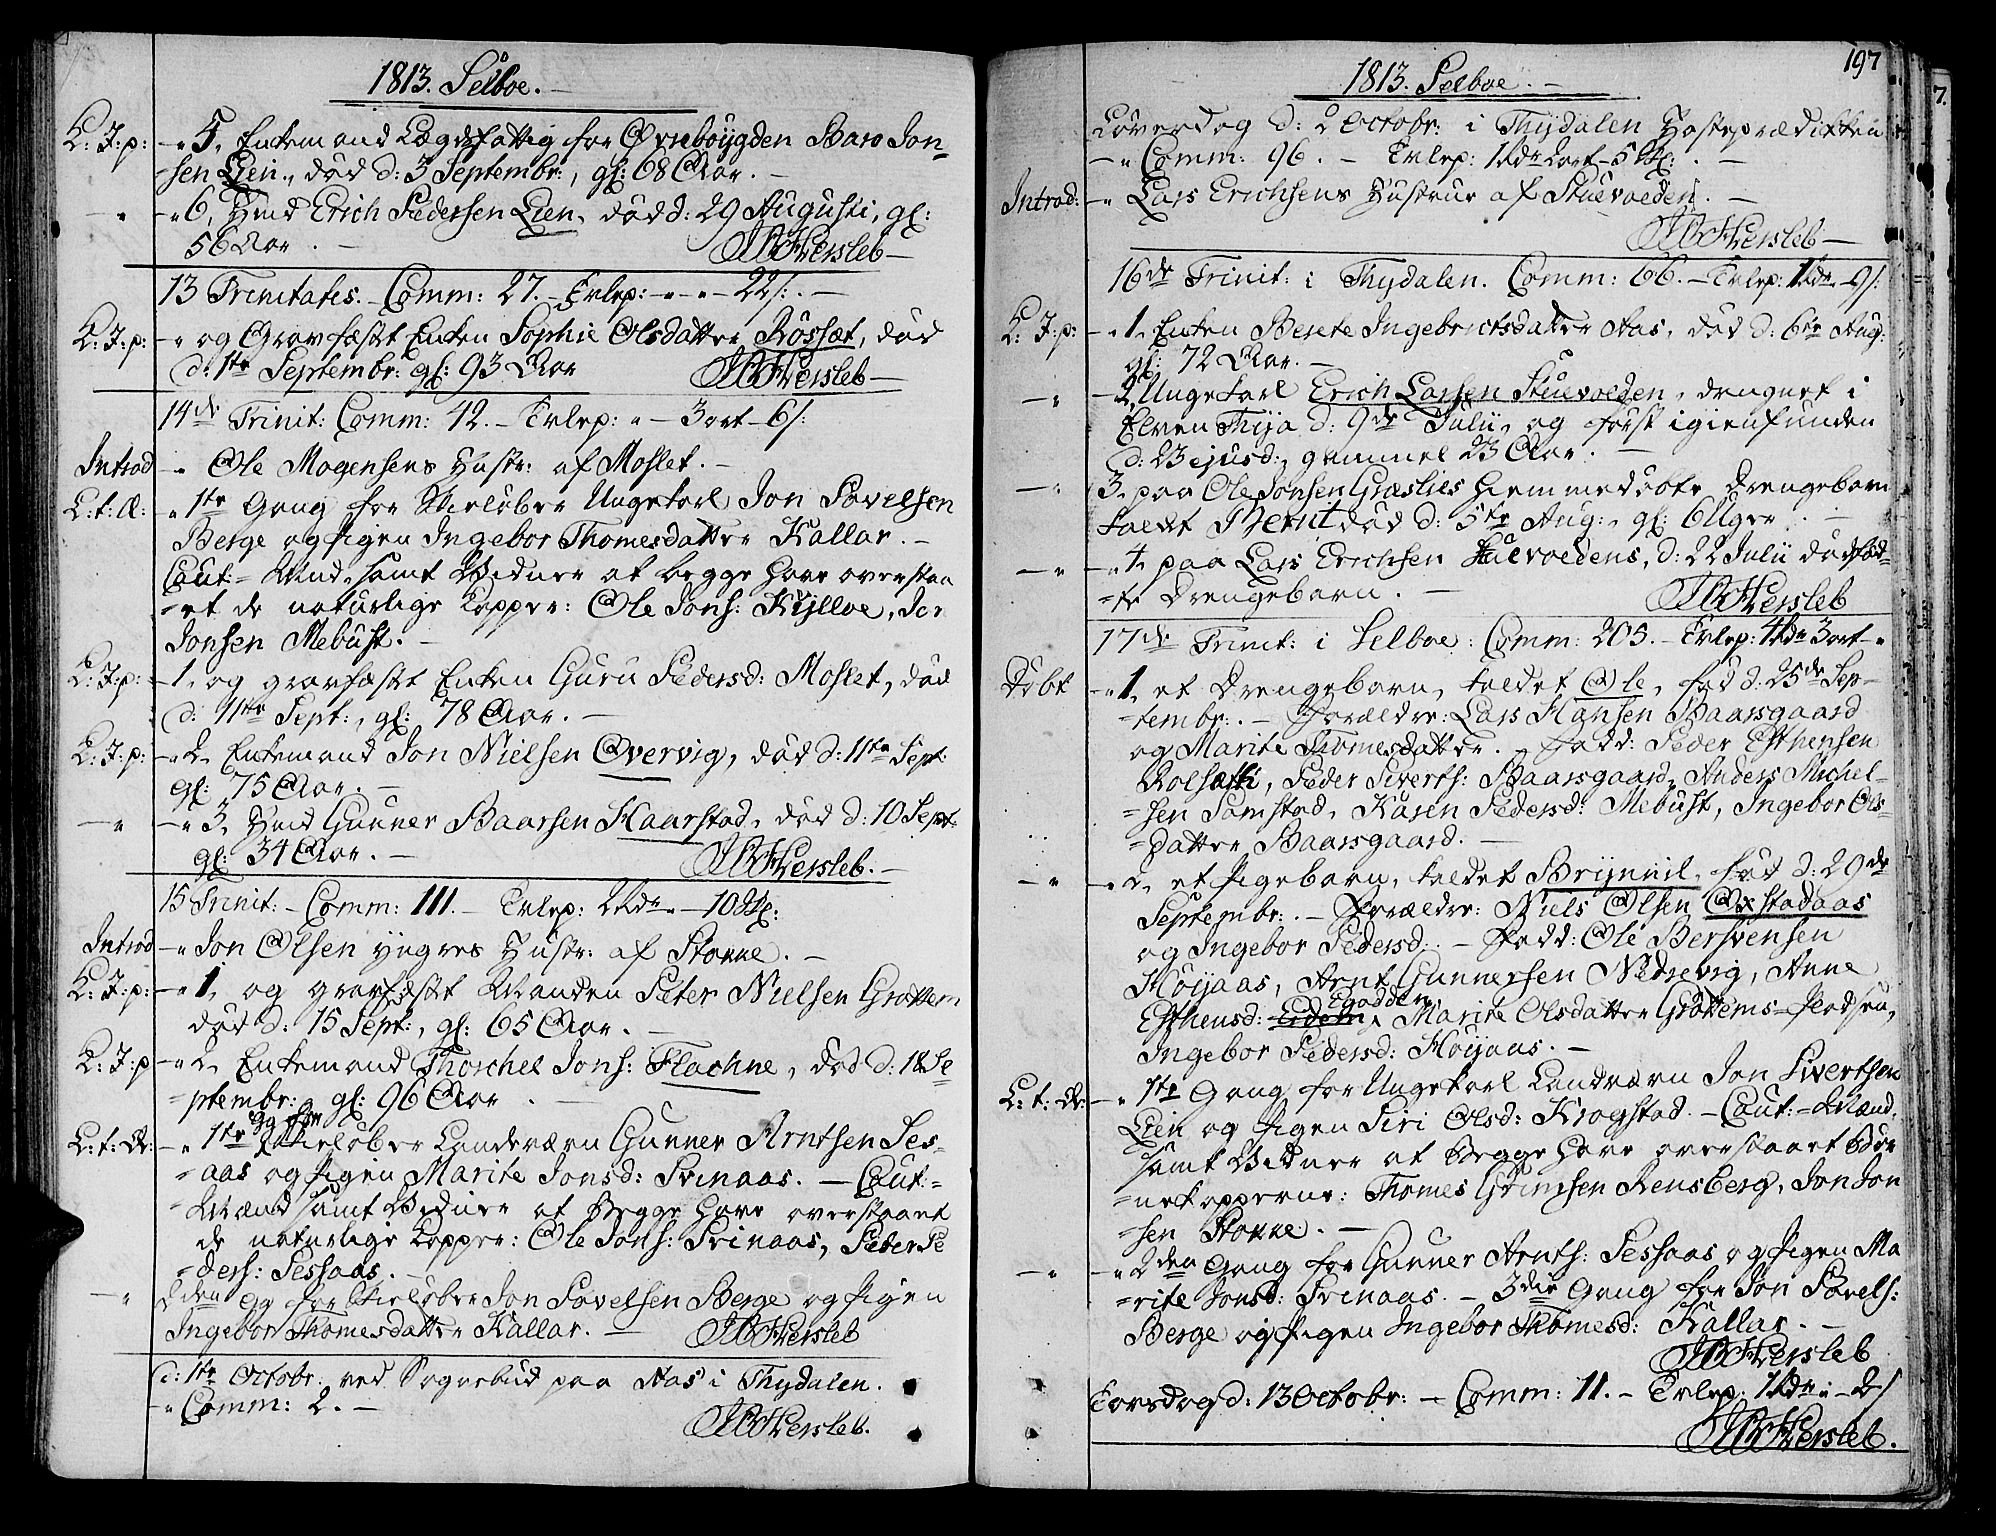 1813. Selboe.
L: J: p: - " 5, Enkemand Lægdsfattig for Øvrebøygden Baar Jon-
sen Lien, død d: 3 Septembr:, gl: 68 Aar. -
- " - " 6, Hmd Erich Pedersen Lien, død d: 29 Augusti, gl:
56 Aar. - Hersleb
13 Trinitates. - Comm: 27. - Erlep: - " - " - 22/:. -
L: J: p: - " og Gravfæstet Enken Sophie Olsdatter Rossæt, død
d: 1te Septembr: gl: 93 Aar Hersleb
14de Trinit: Comm: 42. - Erlep: " - 3 ort - 6/:
Introd - " Ole Mogensens Hustr: af Moslet. -
L: t: Æ: - " 1te Gang for Skieløber Ungekarl Jon Povelsen
Berge og Pigen Ingebor Thomesdatter Kallar. -
Caut:= Mænd, samt Vidner at begge have overstaa
=et de naturlige Kopper: Ole Jons: Kylloe, Jon
Jonsen Mebust. -
L: J: p: - 1, og gravfæstet Enken Guru Pedersd: Moslet, død
d: 11te Sept:, gl: 78 Aar. -
L: J: p: - " 2, Enkemand Jon Nielsen Overvig, død d: 11te Sept:
gl: 75 Aar. -
- " - " 3, Hmd Gunner Baarsen Haarstad, død d: 10 Sept:
gl: 34 Aar. - Hersleb. -
15 Trinit: - Comm: 111. - Erlep: 2 Rdr " - 10 sk:
Introd - " Jon Olsen yngres Hustr: af Stokke. -
L: J: p: - " 1, og gravfæstet Manden Peter Nielsen Grøttem
død d: 15 Sept:, gl: 65 Aar. -
L: J: p - " 2, Enkemand Thorchel Jons: Flachne, død d: 12 Se
=ptembr: gl: 96 Aar. -
Gg for
L: t: Æ: - " 1te Skieløber Landværn Gunner Arntsen Ses-
aas og Pigen Marite Jonsd: Svinaas. - Caut:=
Mænd samt Vidner at Begge have overstaaet
de naturlige Kopper: Ole Jons: Svinaas, Peder Pe
=ders: Sessaas. -
- " 2den Gg for Skieløber Jon Povelsen Berge og Pigen
Ingebor Thomesdatter Kallar. - Hersleb
d: 1te Octobr: ved Sognebud paa Aas i Thydalen.
- " Comm: 2. -
Hersleb.
197
1813. Selboe. -
Løverdag d: 2 Octobr: i Thydalen Høstprædiken
- " Comm: 96. - Erlep: 1 Rdr 2 ort - 5 sk: -
Introd: - " Lars Erichsens Hustrue af Stuevolden. -
Hersleb -
16de Trinit: i Thydalen. Comm: 66. - Erlep: 1 Rdr " - 9/:
L: J: p: - " 1, Enken Berete Ingebrictsdatter Aas, død d: 6te Aug:
gl: 72 Aar. -
- " - 2, Ungekarl Erich Larsen Stuevolden, drugnet i
Elven Thya d: 9de Julii, og først igienfunden
d: 23 ejusd:, gammel 23 Aar. -
- " 3, paa Ole Jonsen Græslies hiemmedøbte Drengebarn
kaldt Bernt død d: 5te Aug:, gl: 6 Uger. -
- " - " 4, paa Lars Erichsen Stuevoldens, d: 22 Julii dødfød-
=te Drengebarn. - Hersleb
17de Trinit: i Selboe: Comm: 205. - Erlep: 4 Rdr 3 ort - "
Døbt - " 1, et Drengebarn, kaldet Ole, fød d: 25de Sep-
=tembr:. - Forældre: Lars Hansen Baarsgaard
og Marite Thomesdatter. - Fadd: Peder Esthensen
Rolsætt, Peder Siverts: Baarsgaard, Anders Michel-
=sen Samstad, Karen Pedersd: Mebust, Ingebor Ols-
=datter Baarsgaard. -
- " - " 2, et Pigebarn, kaldet Brynnil, fød d: 29de
Septembr:. - Forældre: Niels Olsen Oxstadaas
og Ingebor Pedersd:. - Fadd: Ole Bersvensen
Høyaas, Arnt Gunnersen Nedrevig, Anne
Esthensd: Marite Olsdatter Grøttems-Pladsen,
Ingebor Pedersd: Høyaas. -
L: t: Æ: - " 1te Gang for Ungekarl Landværn Jon Sivertsen
Lien og Pigen Siri Olsd: Krogstad. - Caut:= Mænd.
samt Vidner at Begge have overstaaet Bør
=nekopperne: Thomes Grimsen Rensberg, Jon Jon
=sen Stokke. -
- " - " 2den Gang for Gunner Arnts: Sessaas og Pigen Ma
=rite Jonsd: Svinaas. - 3die Gang for Jon Povels:
Berge og Pigen Ingebor Thomesd: Kallar. -
Hersleb
Torsdag d: 13 Octobr: - Comm: 11. - Erlep: 1 Rdr " - 2/
Hersleb.